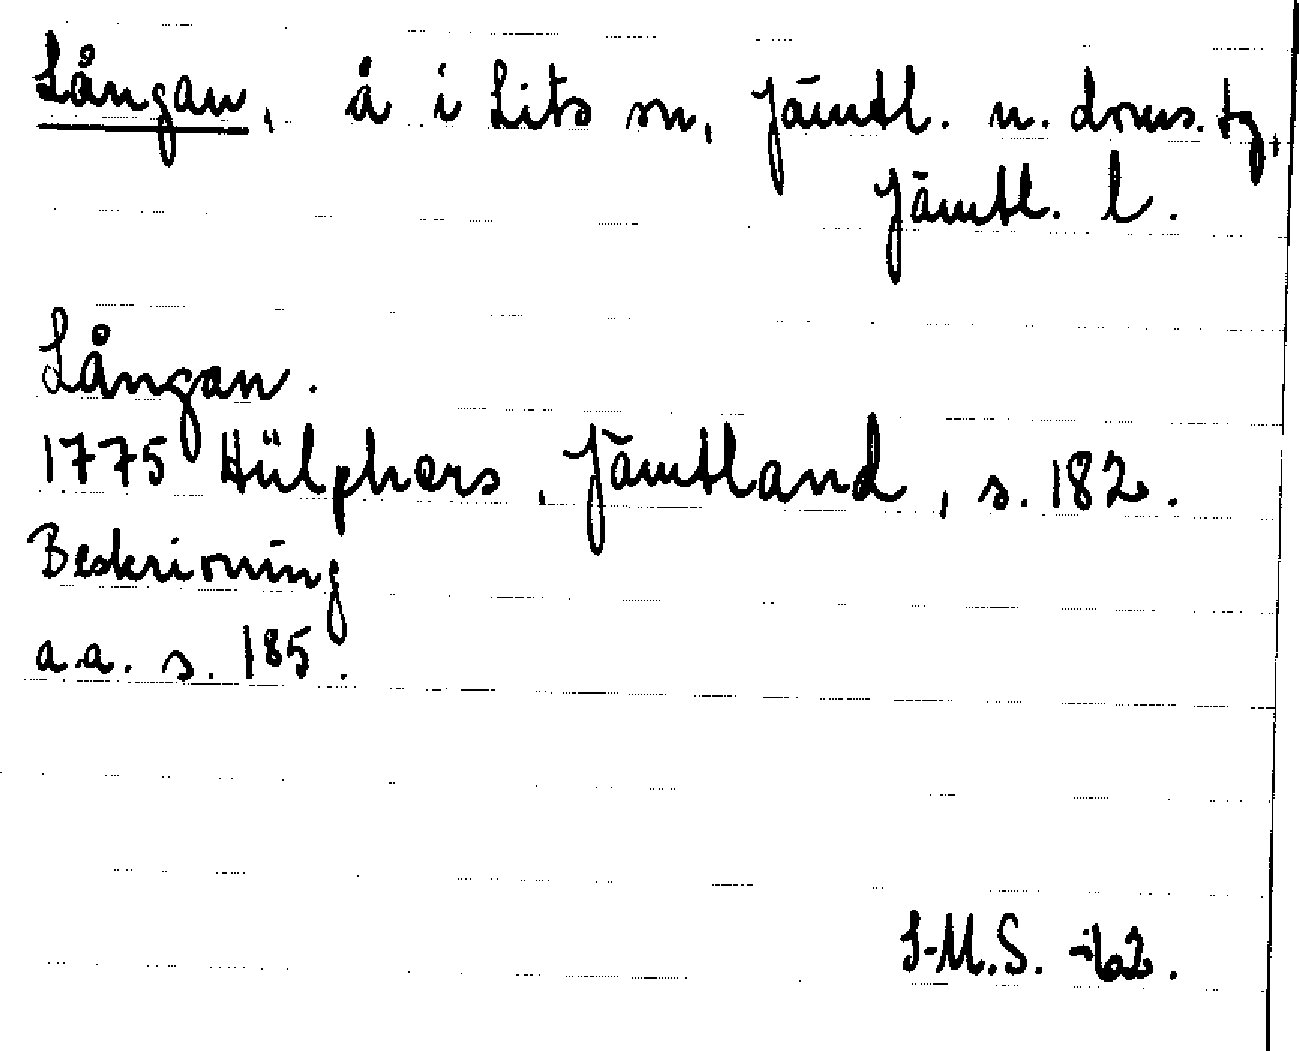 Långan, å i Lits sn, Jämtl. n. doms. tg,
Jämtl. l.
Långan.
1775 Hülphers, Jämtland, s. 182.
Beskrivning
a.a. s. 185.
I-M.S. -62.